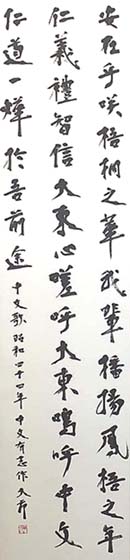 安在乎咲梧桐之華我輩揚鳳梧之年
仁義禮智信大東心嗟呼大東嗚呼中文
仁道一燁於吾前途 中文歌 昭和四十四年 中文有志作